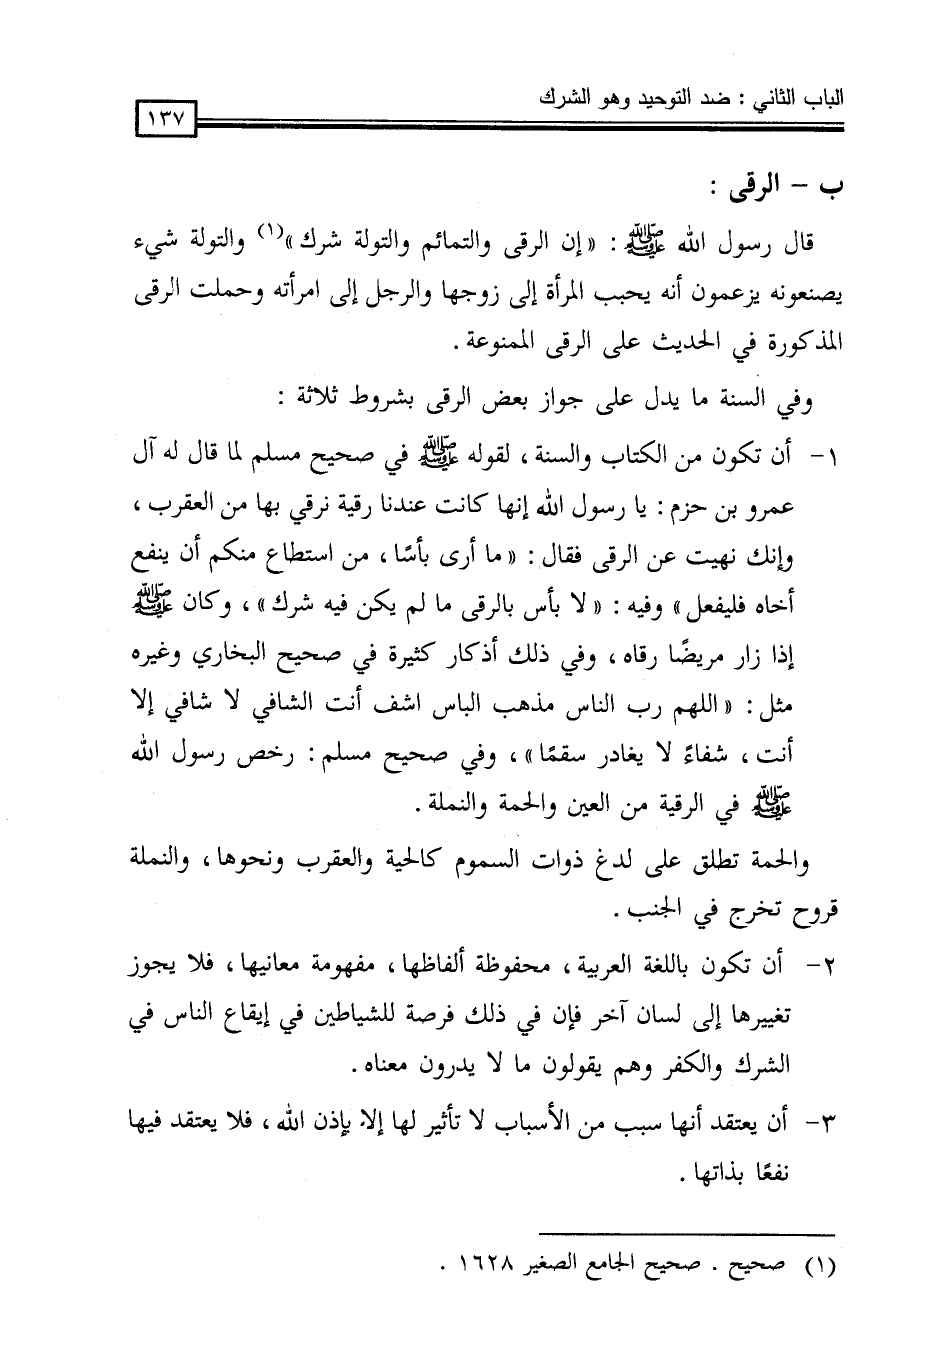 الباب الثاني : ضد التوحيد وهو الشرك
١٣٧
ب - الرقى :
قال رسول الله ﷺ : « إن الرقى والتمائم والتولة شرك »(١) والتولة شيء
يصنعونه يزعمون أنه يحبب المرأة إلى زوجها والرجل إلى امرأته وحملت الرقى
المذكورة في الحديث على الرقى الممنوعة .
وفي السنة ما يدل على جواز بعض الرقى بشروط ثلاثة :
١- أن تكون من الكتاب والسنة ، لقوله ﷺ في صحيح مسلم لما قال له آل
عمرو بن حزم : يا رسول الله إنها كانت عندنا رقية نرقي بها من العقرب ،
وإنك نهيت عن الرقى فقال : « ما أرى بأسًا ، من استطاع منكم أن ينفع
أخاه فليفعل » وفيه : « لا بأس بالرقى ما لم يكن فيه شرك » ، وكان ﷺ
إذا زار مريضًا رقاه ، وفي ذلك أذكار كثيرة في صحيح البخاري وغيره
مثل : « اللهم رب الناس مذهب الباس اشف أنت الشافي لا شافي إلا
أنت ، شفاءً لا يغادر سقمًا » ، وفي صحيح مسلم : رخص رسول الله
ﷺ في الرقية من العين والحمة والنملة .
والحمة تطلق على لدغ ذوات السموم كالحية والعقرب ونحوها ، والنملة
قروح تخرج في الجنب .
٢- أن تكون باللغة العربية ، محفوظة ألفاظها ، مفهومة معانيها ، فلا يجوز
تغييرها إلى لسان آخر فإن في ذلك فرصة للشياطين في إيقاع الناس في
الشرك والكفر وهم يقولون ما لا يدرون معناه .
٣- أن يعتقد أنها سبب من الأسباب لا تأثير لها إلا بإذن الله ، فلا يعتقد فيها
نفعًا بذاتها .
(١) صحيح . صحيح الجامع الصغير ١٦٢٨ .